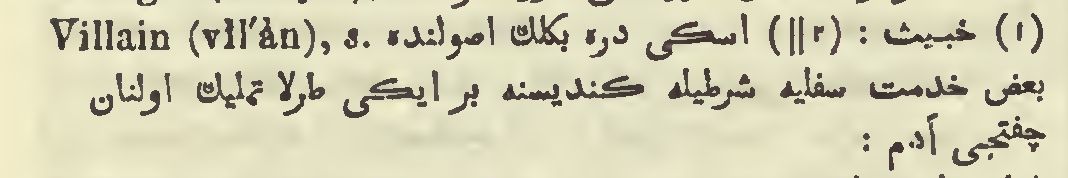 Villain (vĭl′ȧn), s. (١) خبیث : (٢||) اسكی دره بكلك اصولنده
بعض خدمت سفلیه شرطیله كندیسنه بر ایكی طرلا تملیك اولنان
چفتجی آدم :